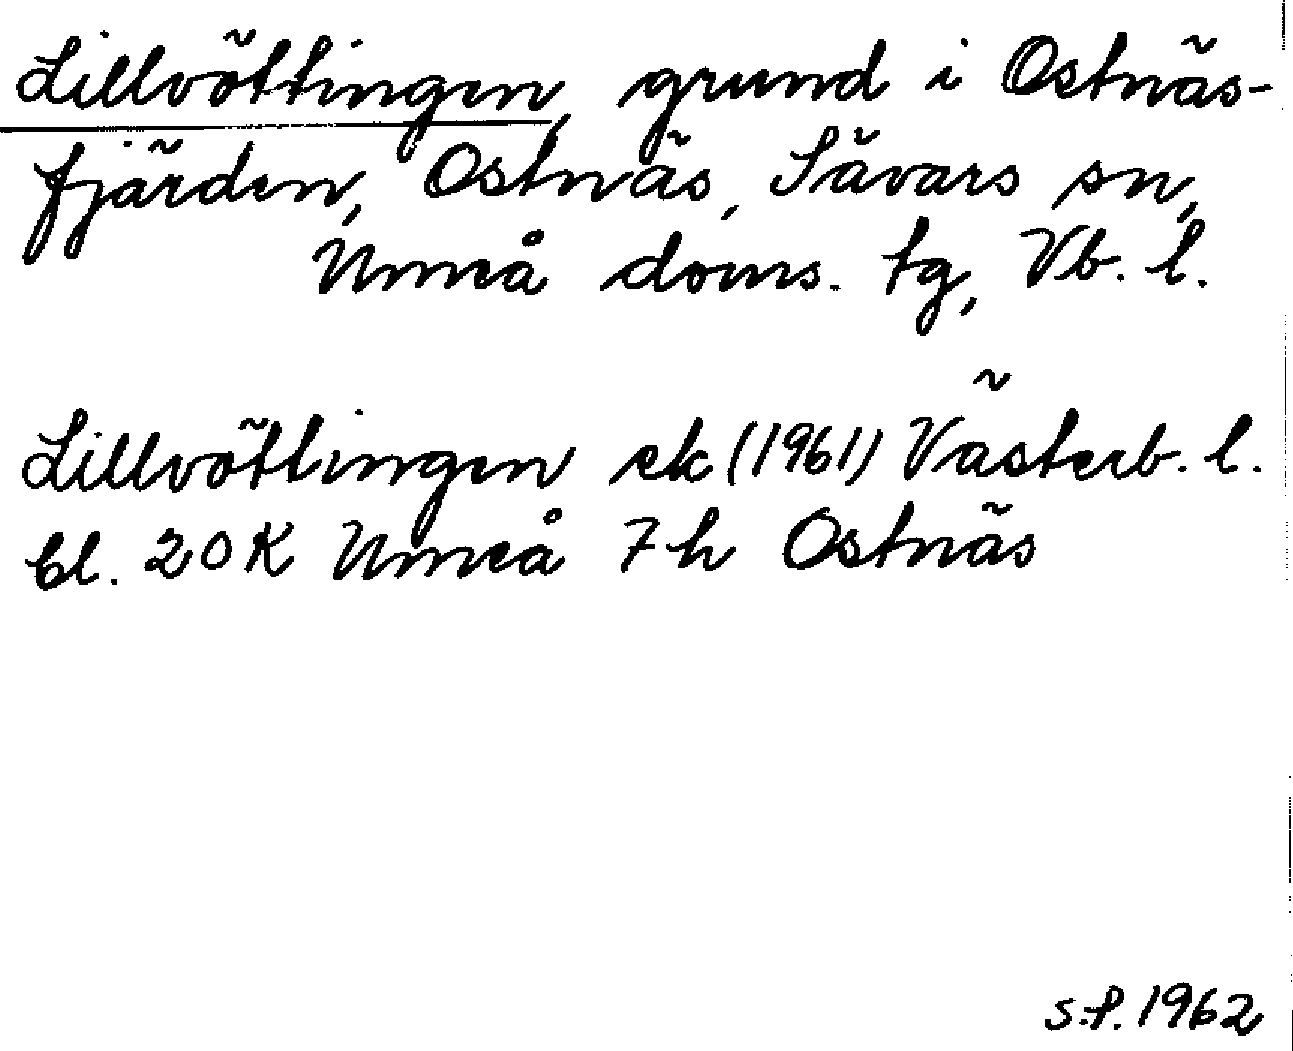 Lillvöttingen, grund i Ostnäs-
fjärden, Ostnäs, Sävars sn,
Umeå doms. tg, Vb. l.
Lillvöttingen ek (1961) Västerb. l.
bl. 20K Umeå 7h Ostnäs
s.f. 1962